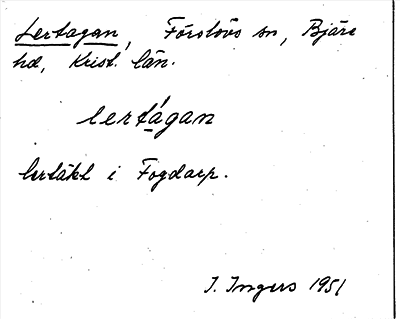 Lertagan, Förslövs sn, Bjäre
hd, Krist. län.
lertágan
lertäkt i Fogdarp.
I. Ingers 1951